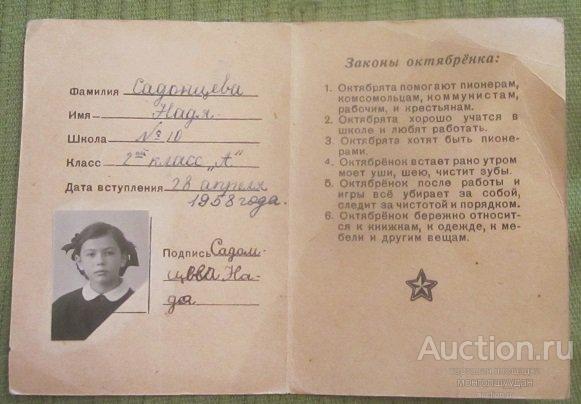 Фамилия Садонцева
Имя Надя.
Школа № 10
Класс 2ой класс „А"
Дата вступления 28 апреля
1958 года.
Подпись Садон-
цева На-
дя
Законы октябрёнка:
1. Октябрята помогают пионерам,
комсомольцам, коммунистам,
рабочим, и крестьянам.
2. Октябрята хорошо учатся в
школе и любят работать.
3. Октябрята хотят быть пионе-
рами.
4. Октябрёнок встает рано утром
моет уши, шею, чистит зубы.
5. Октябрёнок после работы и
игры всё убирает за собой,
следит за чистотой и порядком.
6. Октябрёнок бережно относит-
ся к книжкам, к одежде, к ме-
бели и другим вещам.
Auction.ru
торговая площадка
монголшуудан
auction.ru